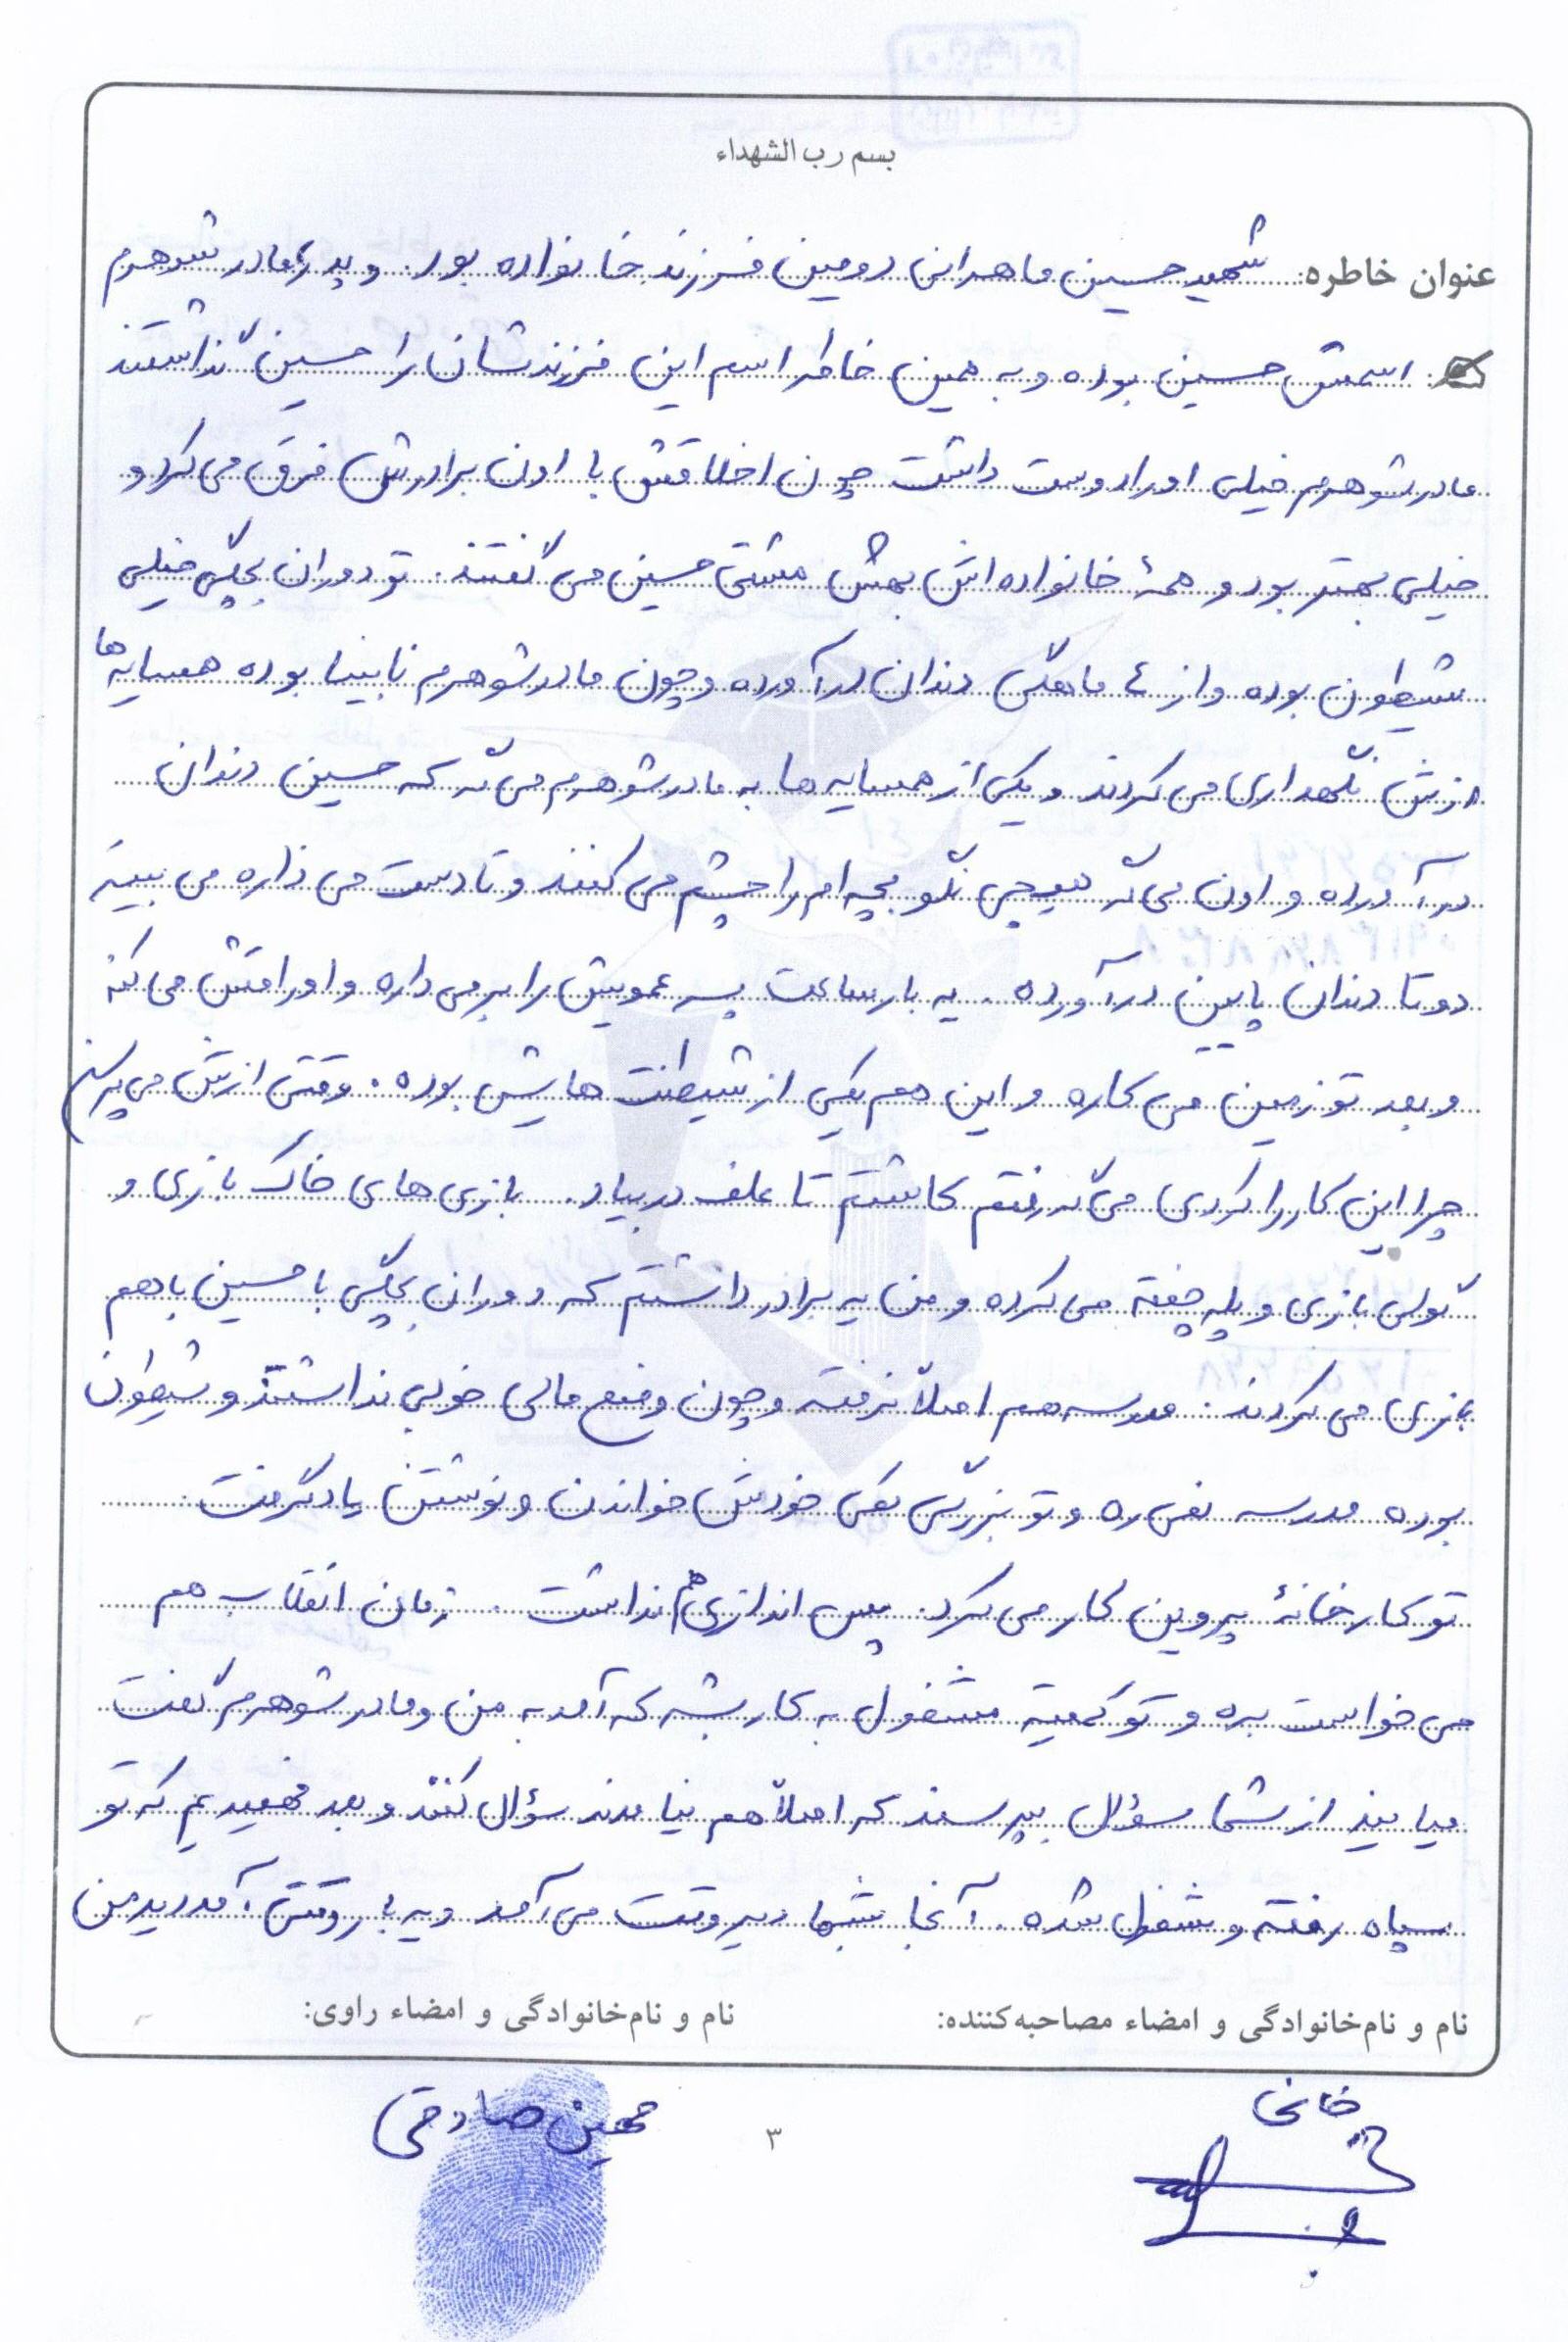 بسم رب الشهداء
عنوان خاطره: شهید حسین ماهرانی دومین فرزند خانواده بود. و پدر مادر شوهرم
اسمش حسین بوده و به همین خاطر اسم این فرزندشان را حسین گذاشتند
مادر شوهرم خیلی او را دوست داشت چون اخلاقش با اون برادرش فرق می کرد و
خیلی بهتر بود و همهٔ خانواده اش بهش مشتی حسین می گفتند. تو دوران بچگی خیلی
شیطون بوده و از ٤ ماهگی دندان درآورده و چون مادر شوهرم نابینا بوده همسایه ها
ازش نگهداری می کردند و یکی از همسایه ها به مادر شوهرم می گه که حسین دندان
درآورده و اون می گه هیچی نگو بچه ام را چشم می کنند و تا دست می ذاره می بینه
دو تا دندان پایین درآورده. یه بار ساعت پسر عمویش را برمی داره و اوراقش می کنه
و بعد تو زمین می کاره و این هم یکی از شیطنت هایش بوده. وقتی ازش می پرسن
چرا این کار را کردی می گه رفتم کاشتم تا علف در بیاد. بازی های خاک بازی و
گولی بازی و پله چفته می کرده و من یه برادر داشتم که دوران بچگی با حسین باهم
بازی می کردند. مدرسه هم اصلاً نرفته و چون وضع مالی خوبی نداشتند و شیطون
بوده مدرسه نمی ره و تو بزرگی خودش خواندن و نوشتن یاد گرفت
تو کارخانهٔ پروین کار می کرد. پس اندازی هم نداشت. زمان انقلاب هم
می خواست بره و تو کمیته مشغول به کار بشه که آمد به من و مادر شوهرم گفت
میا یند از شما سؤال بپرسند که اصلاً هم نیامدند سؤال کنند و بعد فهمیدیم که تو
سپاه رفته و مشغول شده. آنجا شبها دیروقت می آمد و یه بار وقتی آمد دید من
نام و نام‌خانوادگی و امضاء مصاحبه‌کننده: نام و نام‌خانوادگی و امضاء راوی:
خانی مهین صادقی
۳